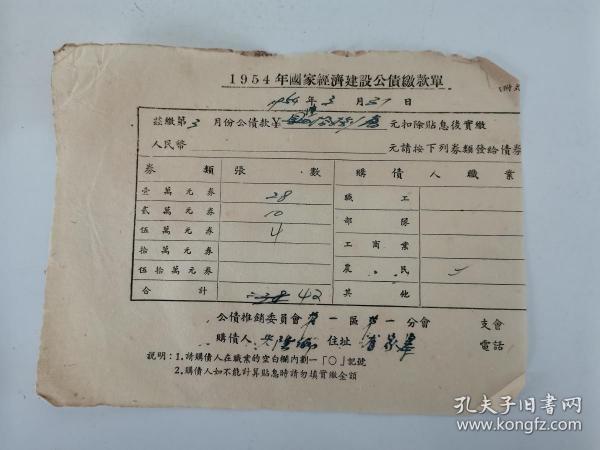 1954年國家經濟建設公債繳款單
1954年3月31日
茲繳第3月份公債款￥ 元扣除貼息後實繳
人民幣 元請按下列券類發給債券
券類 張數 購債人職業
壹萬元券 28 職工
貳萬元券 10 部隊
伍萬元券 4 工商業
拾萬元券
伍拾萬元券 農民
合計 42 其他
公債推銷委員會第一區第一分會 支會
購債人 住址 電話
說明：1.請購債人在職業的空白欄內劃一「○」記號
2.購債人如不能計算貼息時請勿填實繳金額
孔夫子旧书网
www.kongfz.com